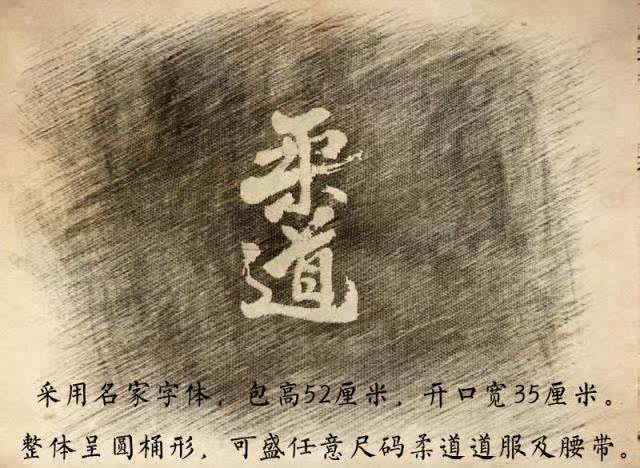 柔道
采用名家字体，包高52厘米，开口宽35厘米。
整体呈圆桶形，可盛任意尺码柔道道服及腰带。